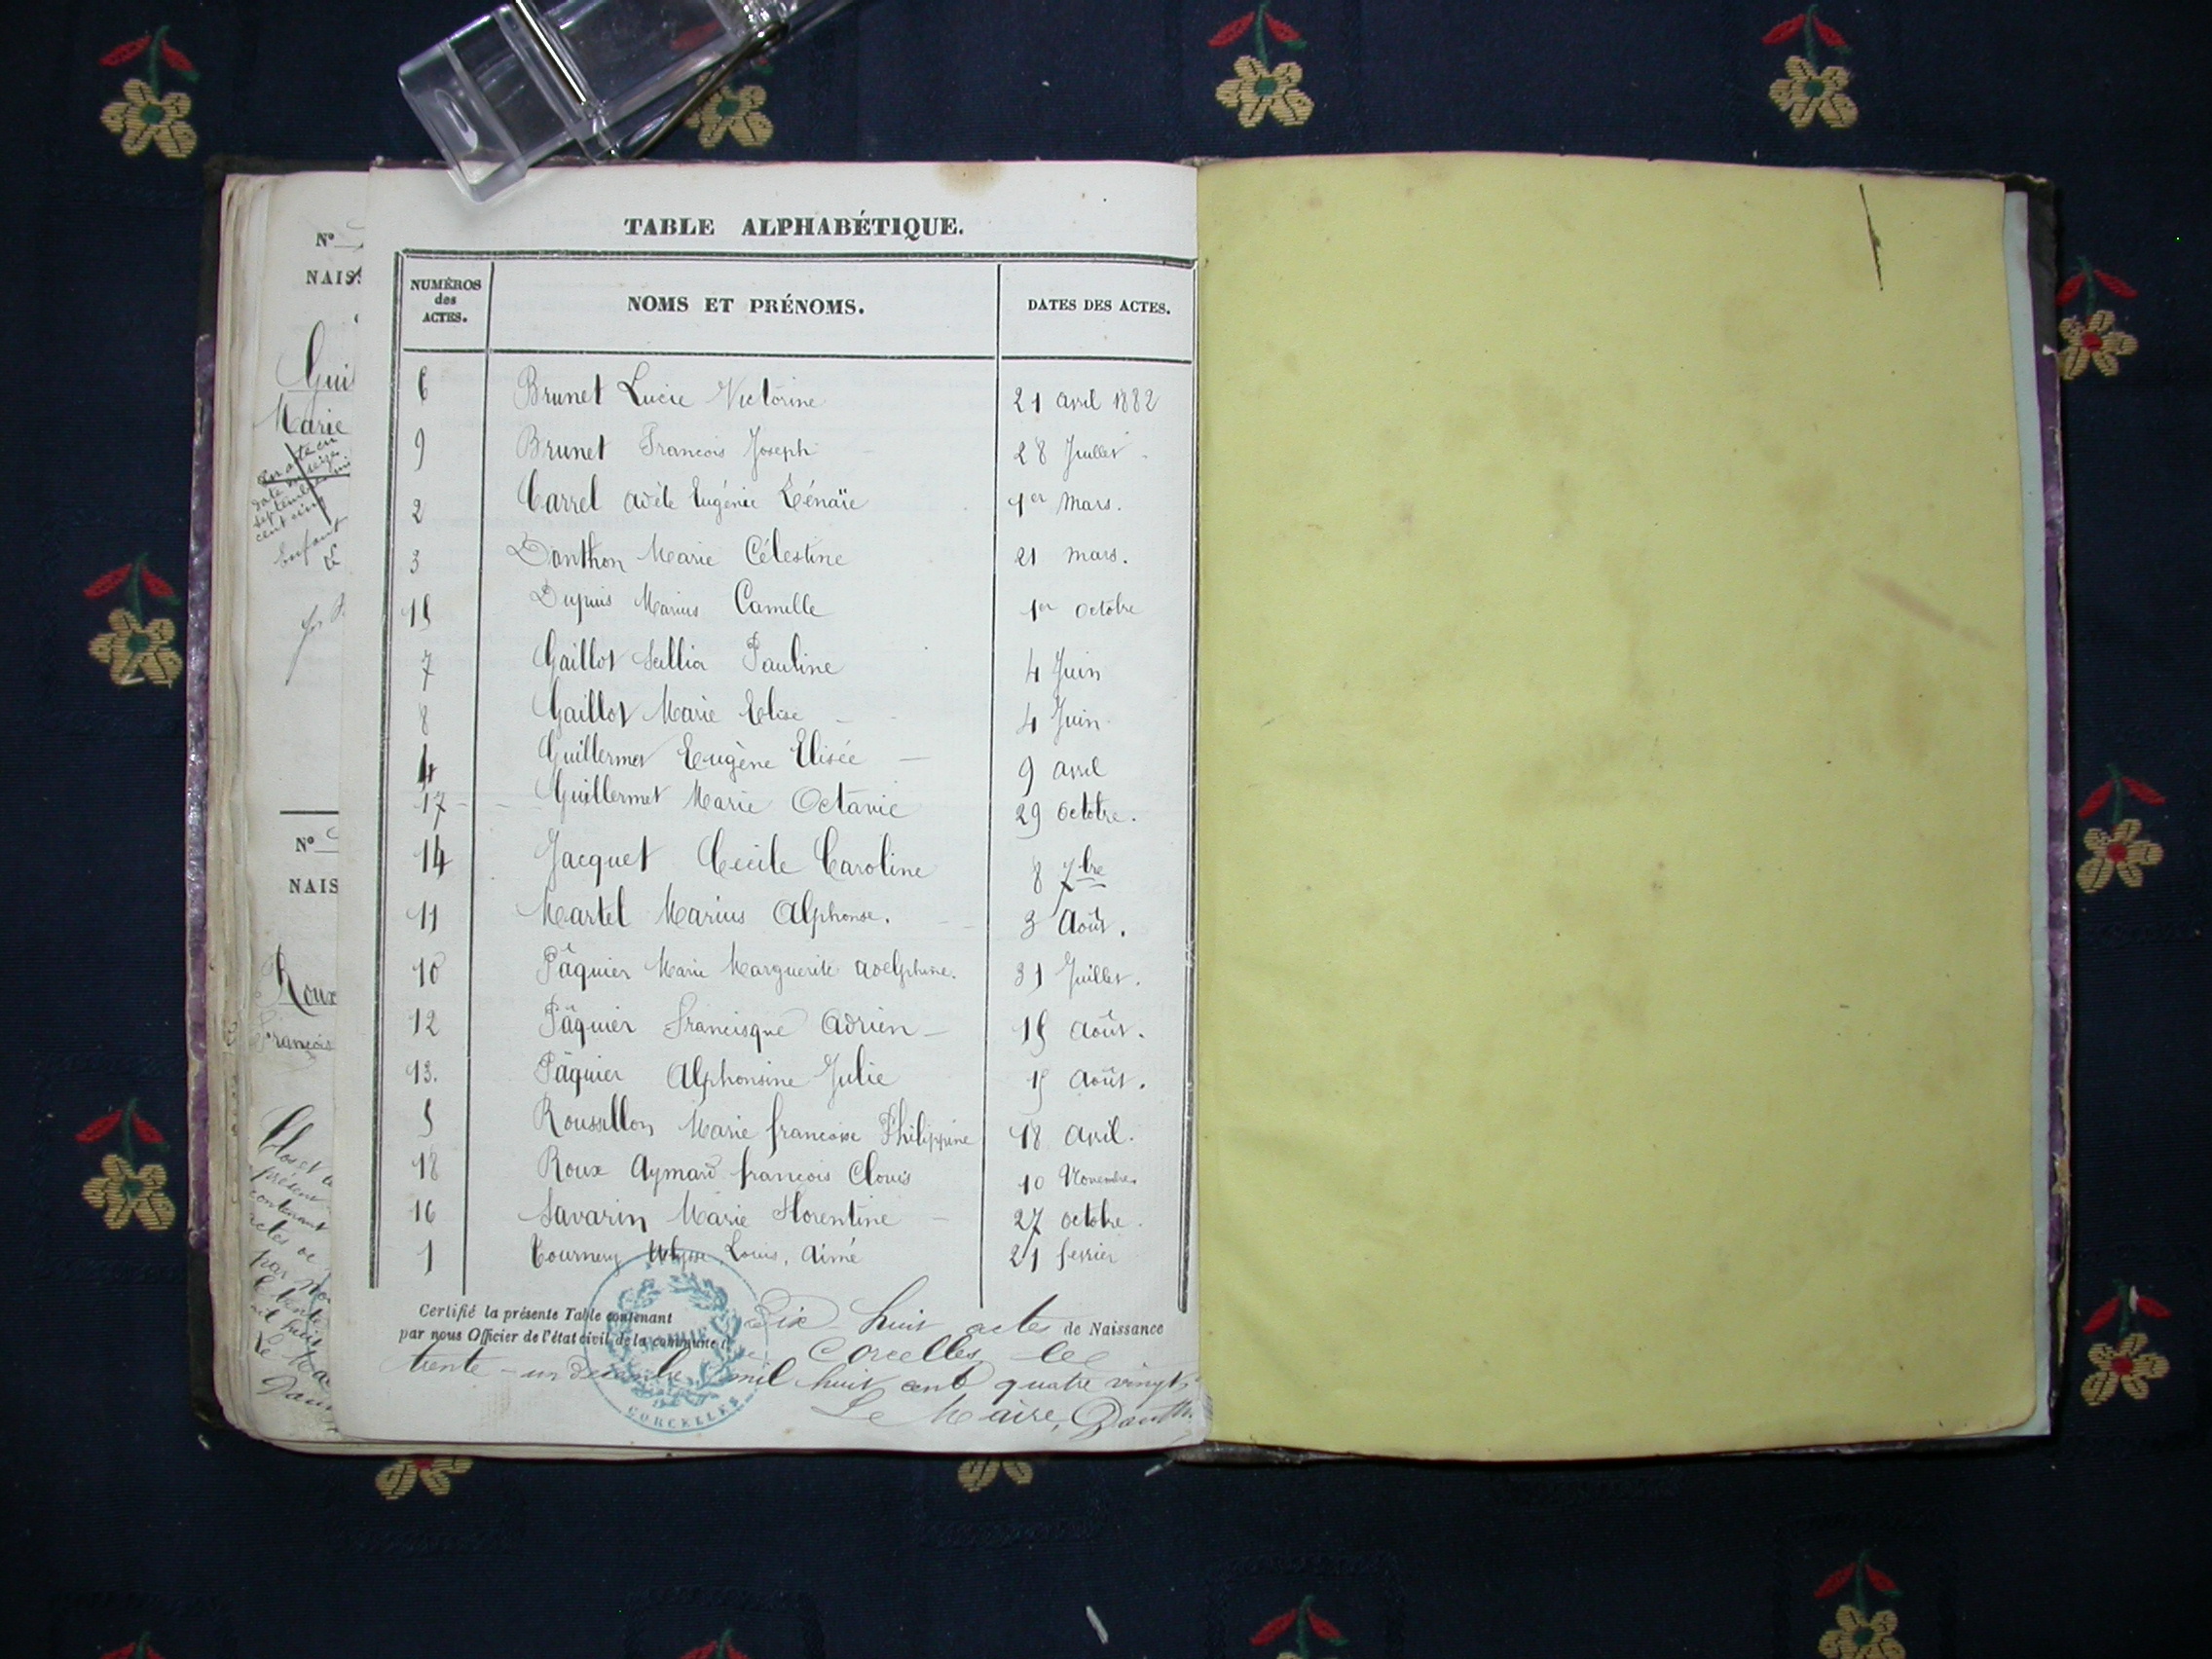 TABLE ALPHABÉTIQUE.
NUMÉROS des ACTES. NOMS ET PRÉNOMS. DATES DES ACTES.
6 Brunet Lucie Victorine 21 avril 1882
9 Brunet François Joseph 28 Juillet
2 Carrel Adèle Eugénie Zénaïe 1er Mars.
3 Danthon Marie Célestine 21 mars.
15 Dupuis Marius Camille 1er octobre
7 Gaillot Pauline 4 Juin
8 Gaillot Marie Elise 4 Juin
4 Guillermet Eugène Elisée 9 avril
17 Guillermet Marie Octavie 29 octobre.
14 Jacquet Cécile Caroline 8 7bre
11 Martel Marius Alphonse. 3 Août.
10 Pâquier Marie Marguerite Adelphine. 31 Juillet.
12 Pâquier Francisque Adrien 15 Août.
13. Pâquier Alphonsine Julie 15 Août.
5 Roussillon Marie françoise Philippine 18 avril.
18 Roux Aymard françois Clovis 10 Novembre
16 Savarin Marie Florentine 27 octobre.
1 Tournery Louis, Aimé 21 fevrier
Certifié la présente Table contenant Dix huit actes de Naissance
par nous Officier de l'état civil de la commune de Corcelles le
trente-un décembre mil huit cent quatre vingt
Le Maire,
CORCELLES
N°
NAIS
Gui
Marie
N°
NAIS
Roux
François